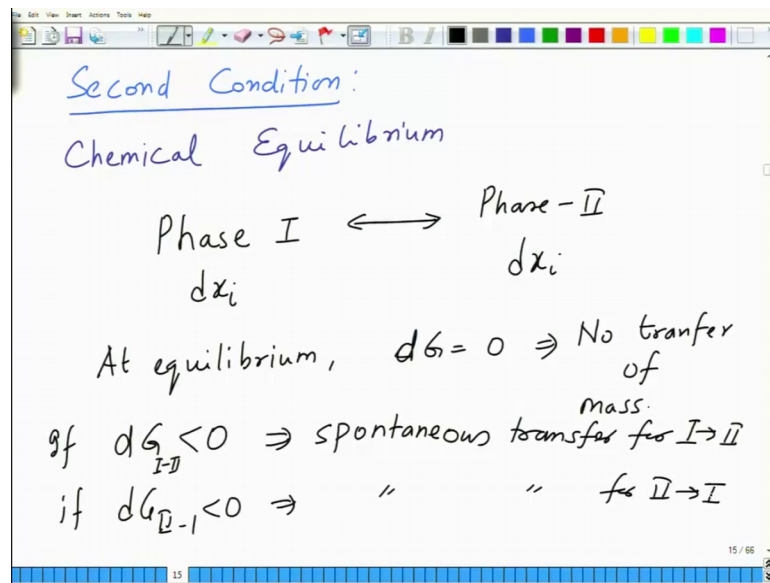 File Edit View Insert Actions Tools Help
B I
Second Condition:
Chemical Equilibrium
Phase I ⟷ Phase-II
dxi dxi
At equilibrium, dG = 0 ⇒ No tranfer
of
mass.
If dG I-II <0 ⇒ spontaneous transfer for I→II
if dG II-1 <0 ⇒ " " for II→I
15 / 66
15